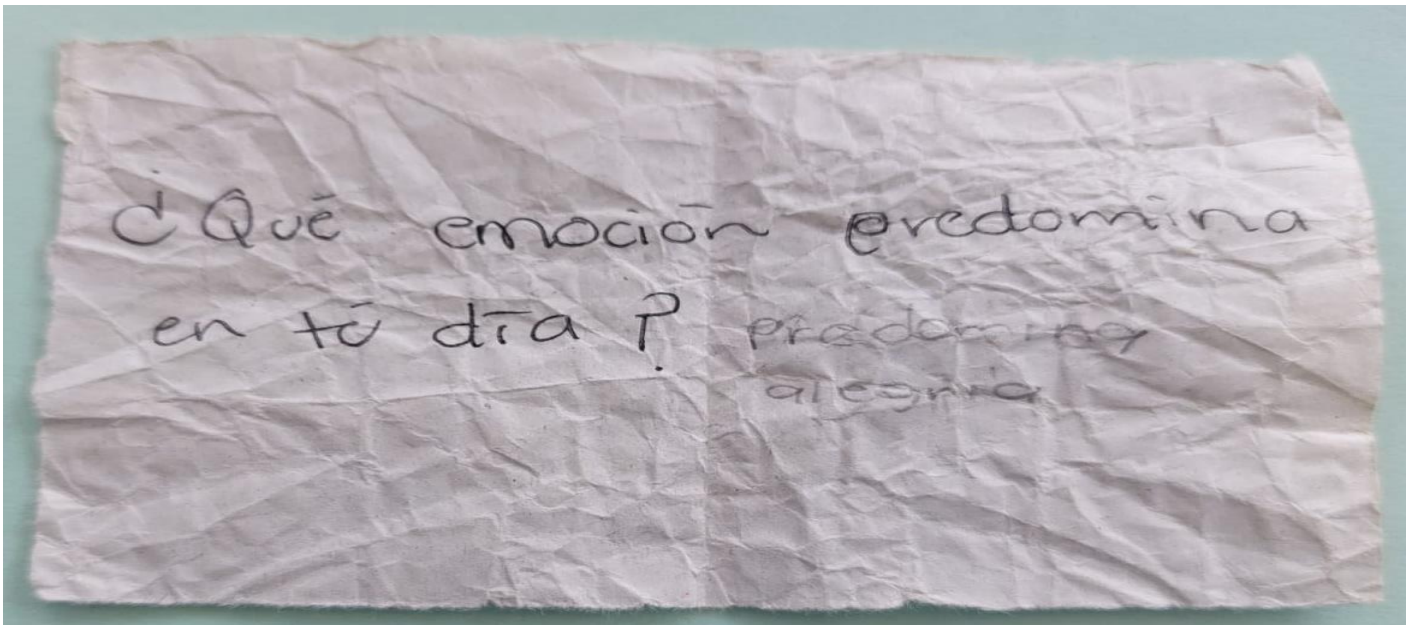 ¿Qué emoción predomina
en tú día? predomina
alegria